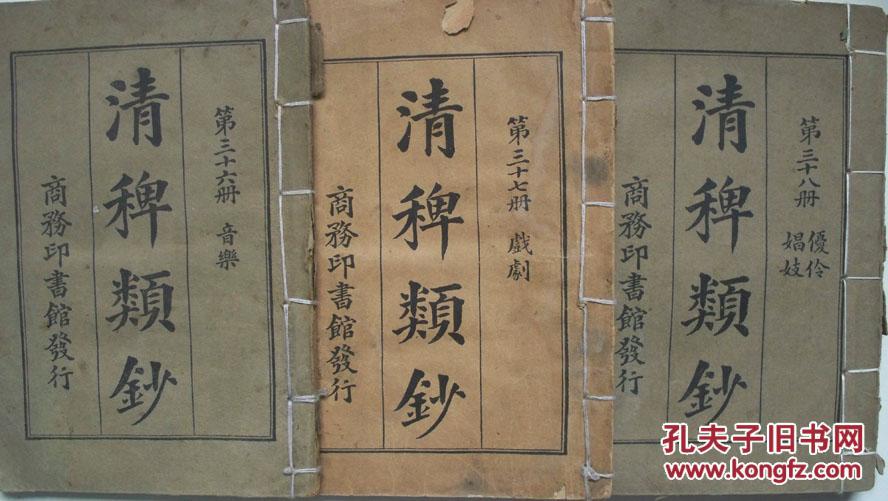 第三十六册 音樂
清稗類鈔
商務印書館發行
第三十七册 戲劇
清稗類鈔
商務印書館發行
第三十八册 優伶 娼妓
清稗類鈔
商務印書館發行
孔夫子旧书网
www.kongfz.com